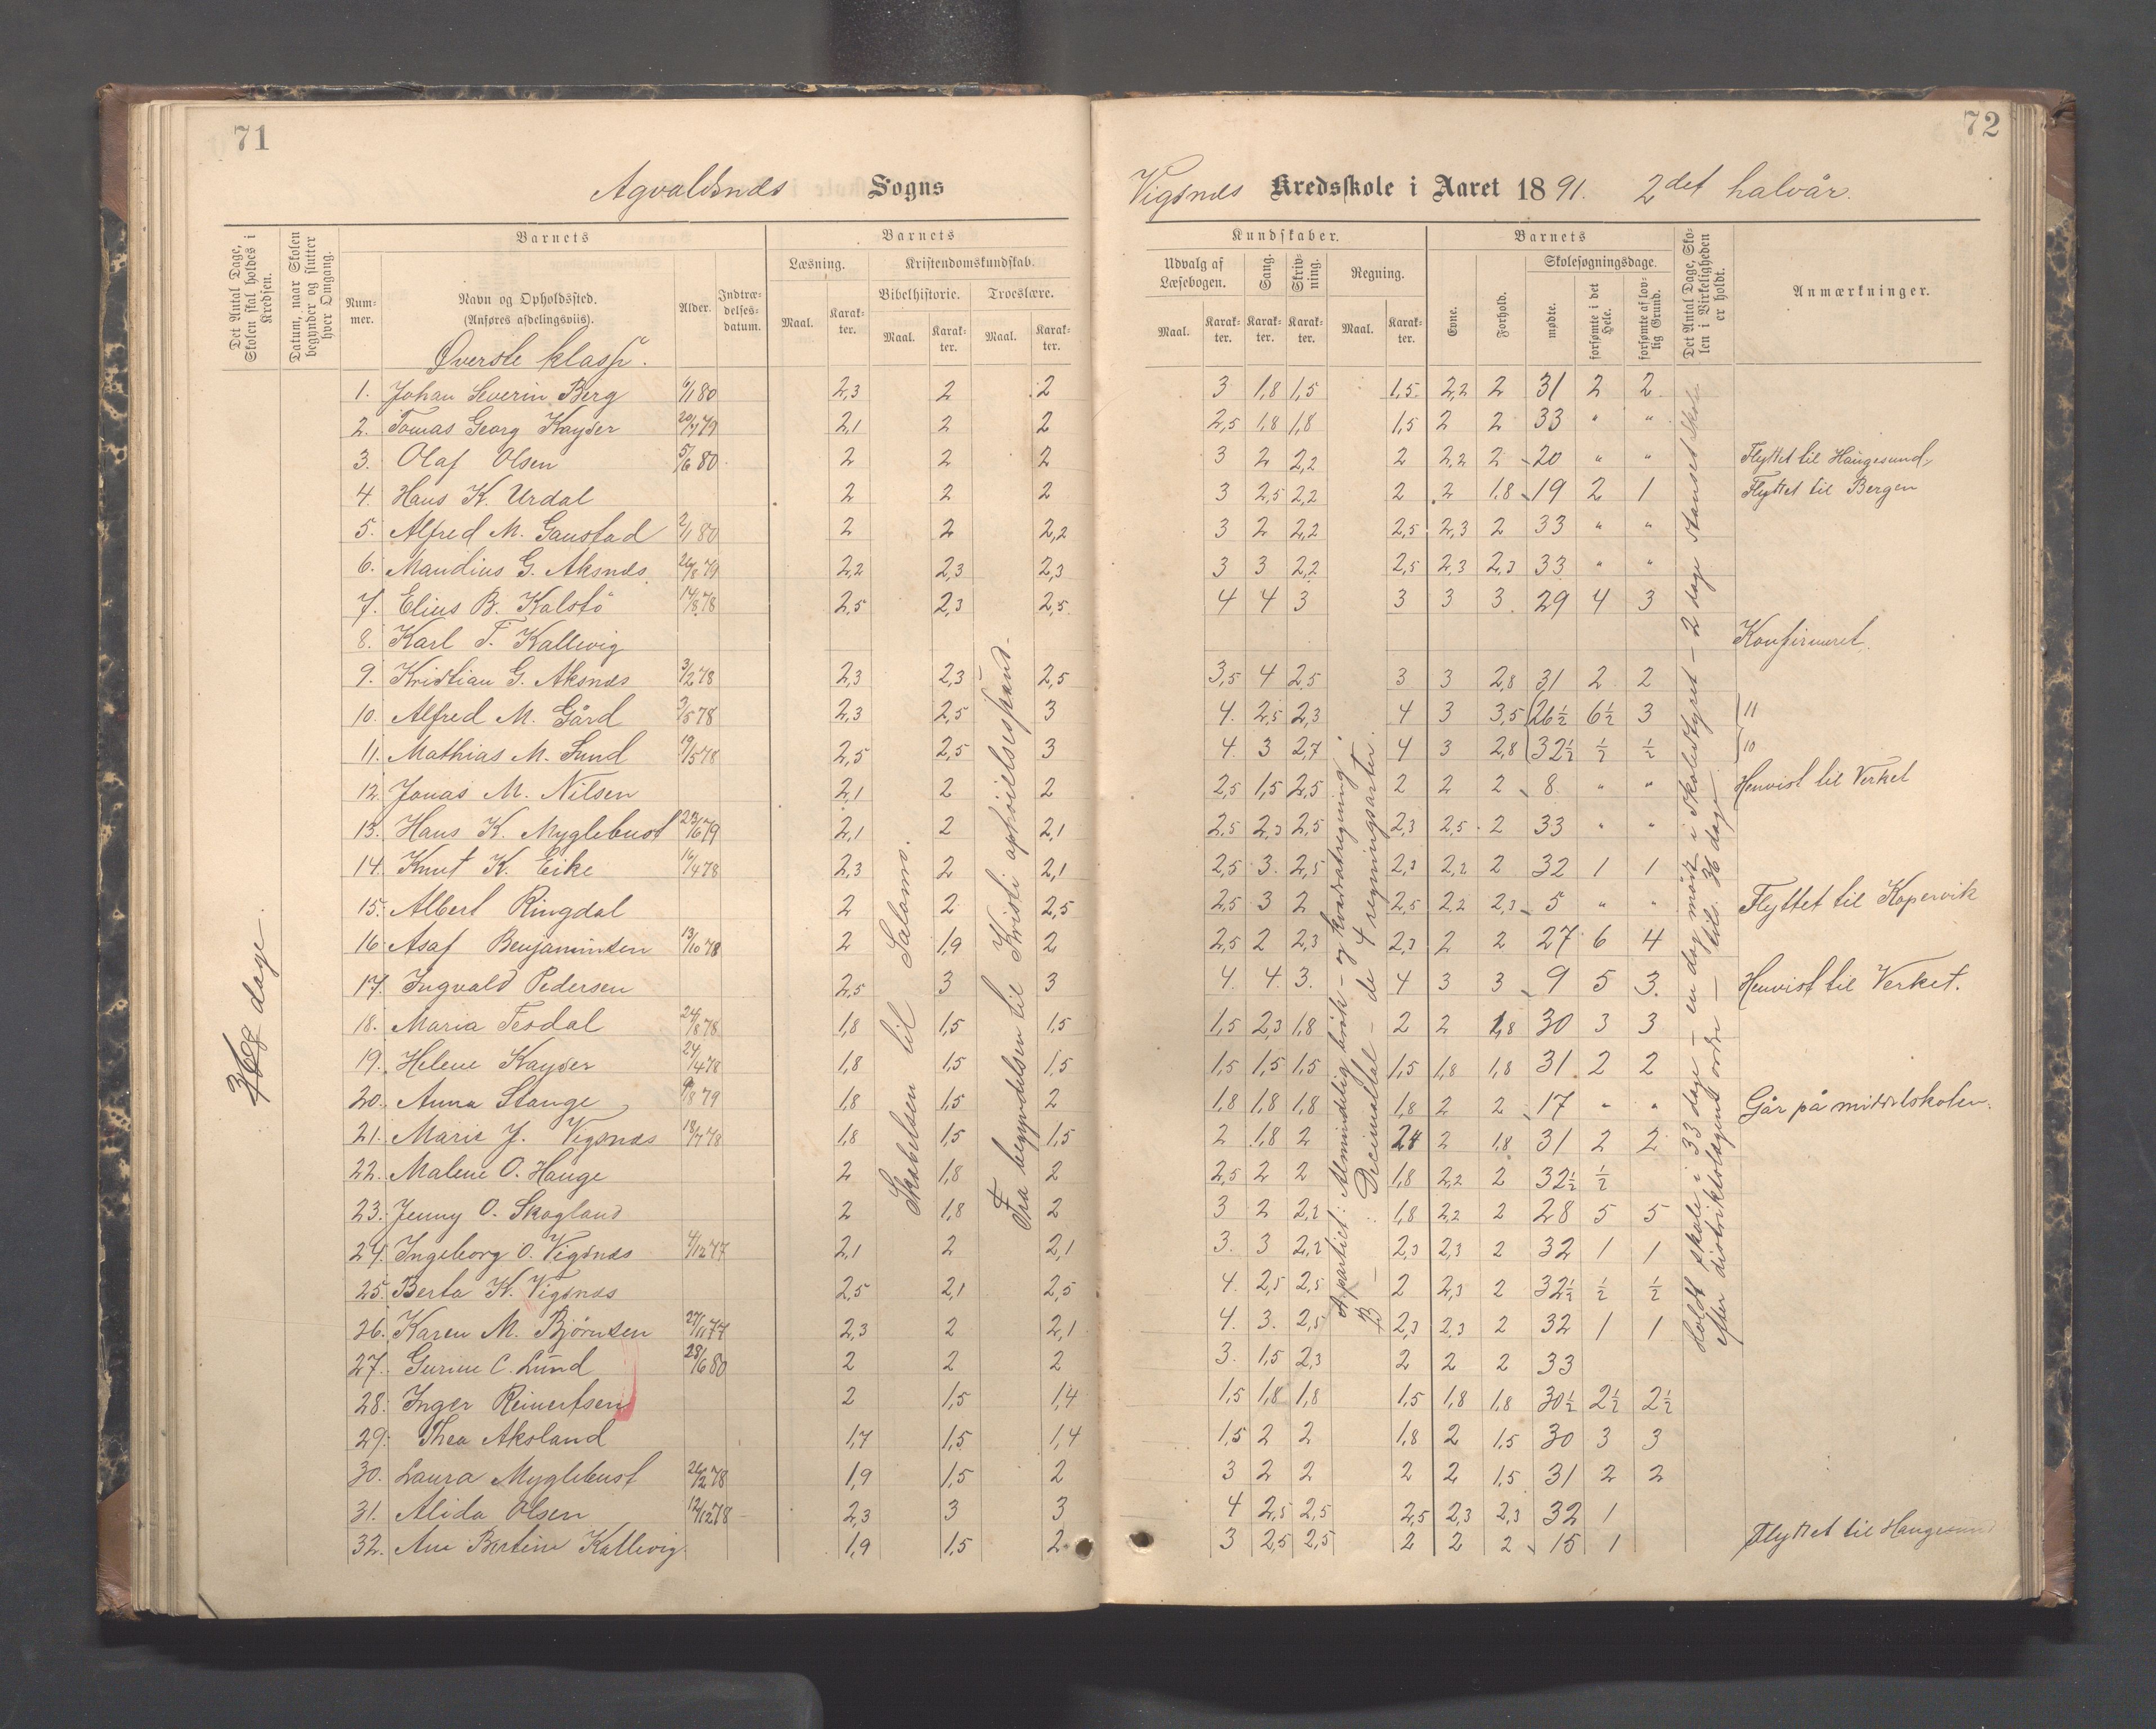 71
Agvaldsnæs Sogns
Det Antal Dage, Skolen skal holdes i Kredsen.
Datum, naar Skolen begynder og slutter hver Omgang.
Barnets
Nummer.
Navn og Opholdssted.
(Anføres afdelingsviis).
Alder.
Indtrædelsesdatum.
Barnets
Læsning.
Kristendomskundskab.
Bibelhistorie.
Troeslære.
Maal. Karakter. Maal. Karakter. Maal. Karakter.
Øverste klasse.
36 dage
Skabelsen til Salomo.
Fra begyndelsen til Kristi ophøielsesstand.
1. Johan Severin Berg 6/1 80 2,3 2 2
2. Tomas Georg Kayser 79 2,1 2 2
3. Olaf Olsen 5/6 80 2 2 2
4. Hans K. Urdal 2 2 2
5. Alfred M. Gaustad 2/1 80 2 2 2,2
6. Mandius G. Aksnæs 26/8 79 2,2 2,3 2,3
7. Elius B. Kalstö 14/8 78 2,5 2,3 2,5
8. Karl T. Kallevig
9. Kristian G. Aksnæs 3/12 78 2,3 2,3 2,5
10. Alfred M. Gård 3/5 78 2,3 2,5 3
11. Mathias M. Lund 19/5 78 2,5 2,5 3
12. Jonas M. Nilsen 2,1 2 2
13. Hans K. Myglebust 23/6 79 2,1 2 2,1
14. Knut K. Eike 16/4 78 2,3 2 2,1
15. Albert Ringdal 2 2 2,5
16. Asaf Benjaminsen 13/10 78 2 1,9 2
17. Ingvald Pedersen 2,5 3 3
18. Maria Tesdal 24/8 78 1,8 1,5 1,5
19. Helene Kayser 24/4 78 1,8 1,5 1,5
20. Anna Stange 9/8 79 1,8 1,5 2
21. Marie J. Vigsnæs 18/7 78 1,8 1,5 1,5
22. Malene O. Hauge 2 1,8 2
23. Jenny O. Skogland 2 1,8 2
24. Ingeborg O. Vigsnæs 4/12 77 2,1 2 2,1
25. Berta K. Vigsnæs 2,5 2,1 2,5
26. Karen M. Bjørnsen 27/11 77 2,3 2 2,1
27. Gurine C. Lund 28/6 80 2 2 2
28. Inger Reinertsen 2 1,5 1,4
29. Thea Aksland 1,7 1,5 1,4
30. Laura Myglebust 26/2 78 1,9 1,5 2
31. Alida Olsen 12/12 78 2,3 3 3
32. Ane Bertine Kallevig 1,9 1,5 2
72
Vigsnæs Kredsskole i Aaret 1891. 2det halvår.
Kundskaber.
Udvalg af Læsebogen.
Sang.
Skrivning.
Regning.
Maal. Karakter. Karakter. Karakter. Maal. Karakter.
Barnets
Evne.
Forhold.
Skolesøgningsdage.
mødte.
forsømte i det Hele.
forsømte af lovlig Grund.
Det Antal Dage, Skolen i Virkeligheden er holdt.
Anmærkninger.
A. partiet: Almindelig brøk- og kvadratregning
B — Decimaltal - de 4 regningsarter.
Holdt skole i 33 dage - en dag möde i skolestyret - 2 dage stanset skole
efter distriktslægens ordre - tils. 36 dage
3 1,8 1,5 1,5 2,2 2 31 2 2
2,5 1,8 1,8 1,5 2 2 33 " "
3 2 2,2 2 2,2 2 20 " " Flyttet til Haugesund
3 2,5 2,2 2 2 1,8 19 2 1 Flyttet til Bergen
3 2 2,2 2,5 2,3 2 33 " "
3 3 2,2 2,5 2,3 2,3 33 " "
4 4 3 3 3 3 29 4 3
Konfirmeret.
3,5 4 2,5 3 3 2,8 31 2 2
4 2,5 2,3 4 3 3,5 26½ 6½ 3 11
4 3 2,7 4 3 2,8 32½ ½ ½ 10
2,5 1,5 2,5 2 2 2 8 " " Henvist til Verket
2,5 2,3 2,5 2,3 2,5 2 33 " "
2,5 3 2,5 2,3 2,2 2 32 1 1
2,5 3 2 2,5 2,2 2,3 5 " " Flyttet til Kopervik
2,5 2 2,3 2,3 2 2 27 6 4
4 4 3 4 3 3 9 5 3 Henvist til Verket.
1,5 2,3 1,8 2 2 1,8 30 3 3
1,5 1,5 1,5 1,5 1,8 1,8 31 2 2
1,8 1,8 1,8 1,8 2 2 17 " " Går på middelskolen.
2 1,8 2 2,4 2 1,8 31 2 2
2,5 2 2 1,8 2,2 2 32½ ½
3 2 2,2 1,8 2,2 2 28 5 5
3 3 2,2 2,3 2,3 2 32 1 1
4 2,5 2,5 2 2,3 2 32½ ½ ½
4 3 2,5 2,3 2,3 2 32 1 1
3 1,5 2,3 2 2 2 33
1,5 1,8 1,8 1,5 1,8 1,8 30½ 2½ 2½
1,5 2 2 1,8 2 1,5 30 3 3
3 2 2 2 2 1,5 31 2 2
4 2,5 2,5 2,5 2,3 2,3 32 1
3 2,5 2,5 2 2 2 15 1 Flyttet til Haugesund